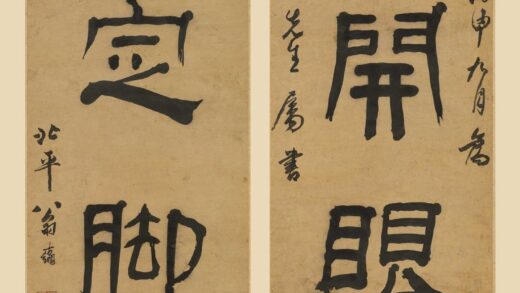 申九月為
開眼
先生屬書
定脚
北平八翁